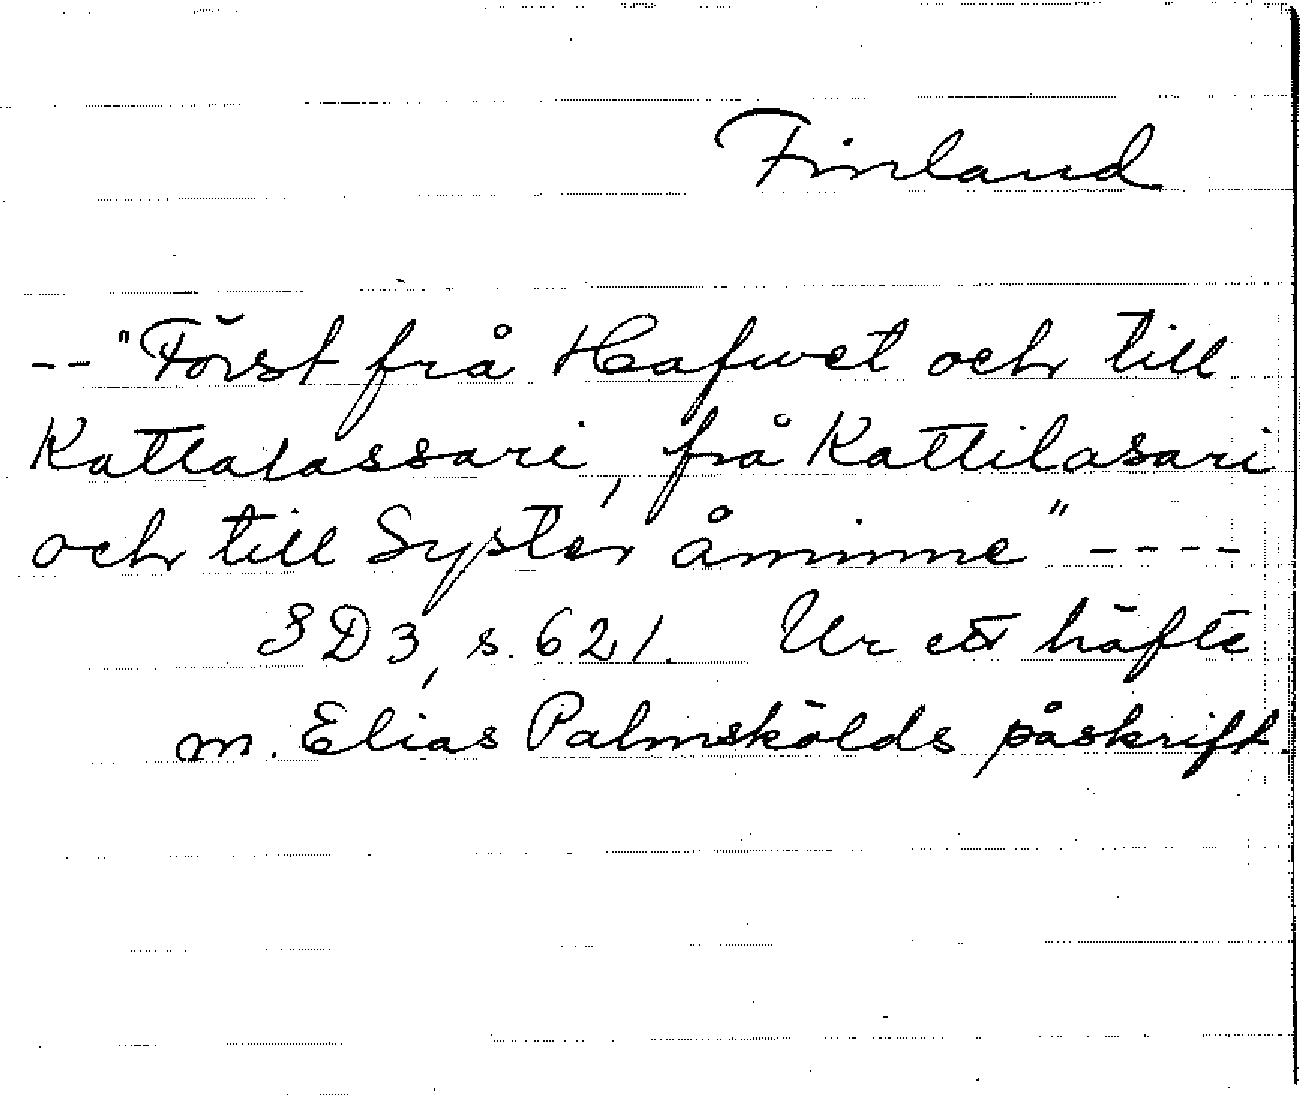 Finland
-- "Först frå Hafwet och till
Kattalassari, frå Kattilasari
och till Syster åminne" ----
SD3, s. 621. Ur ett häfte
m. Elias Palmskölds påskrift.